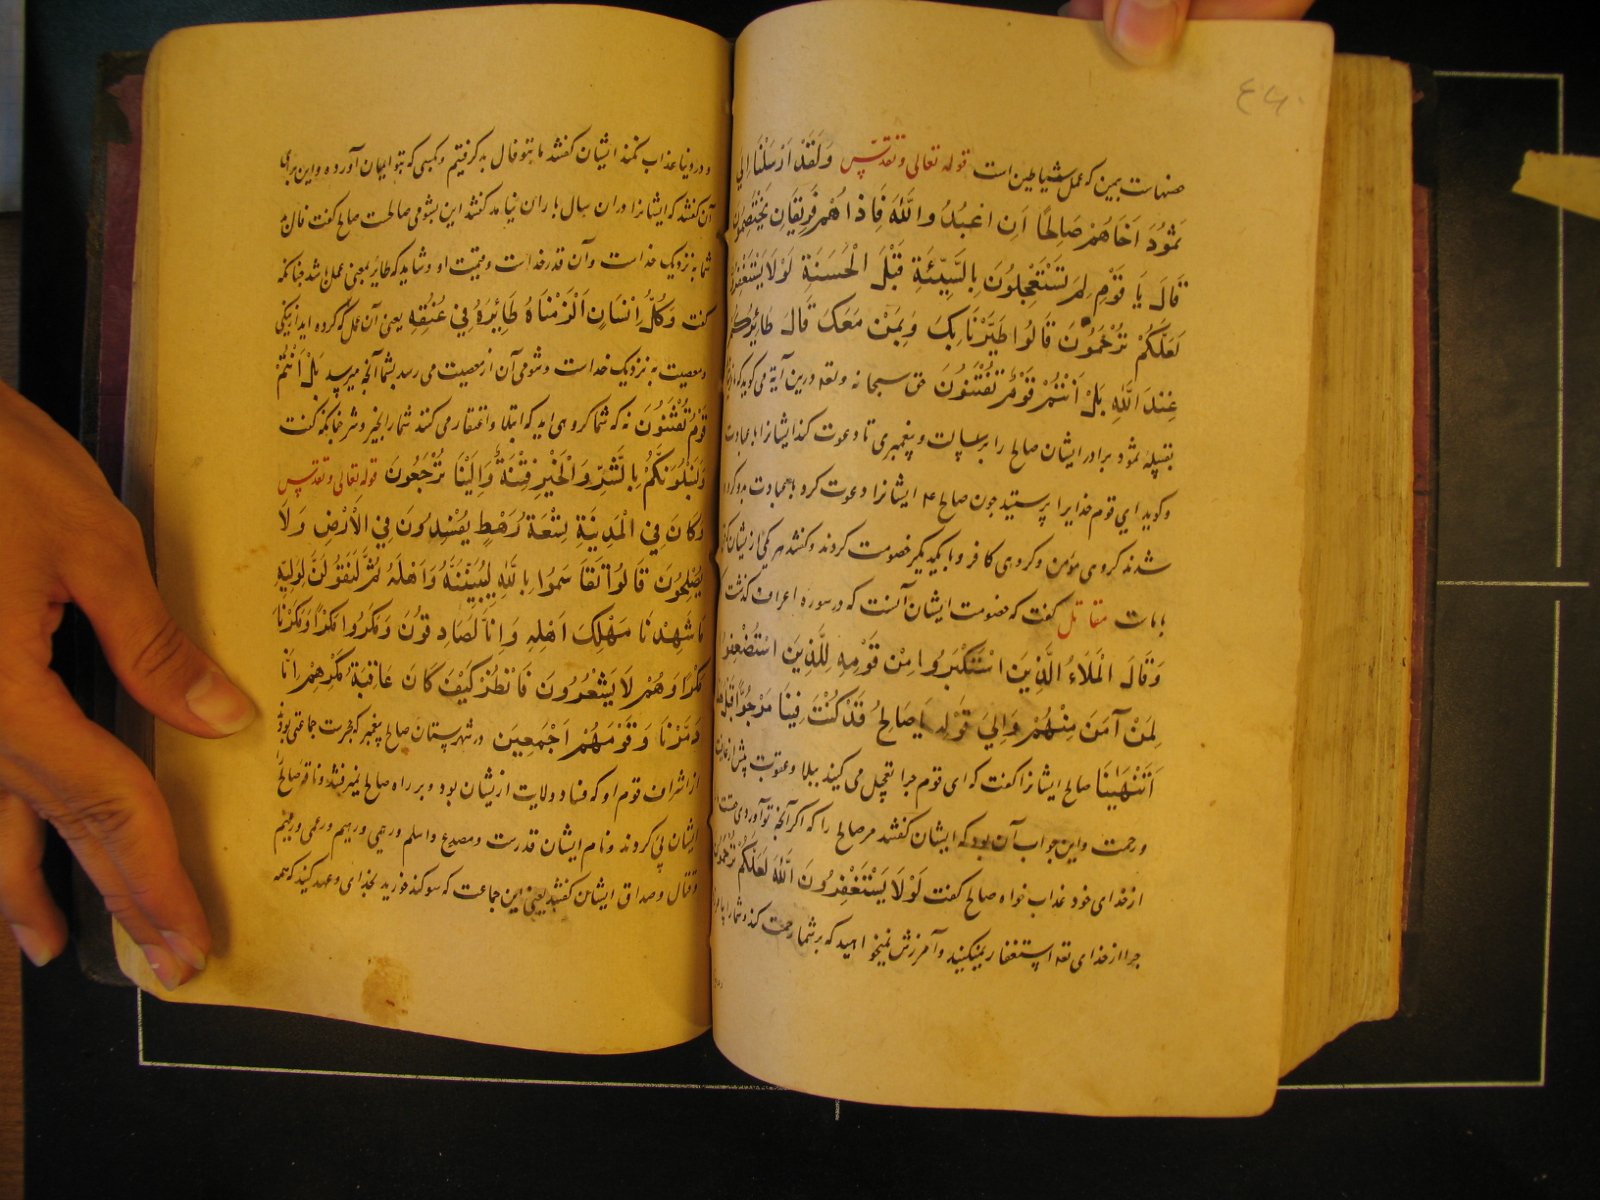 ۴۶۰
صنهات بمین که عمل شیاطین است قوله تعالی وتقدس وَلَقَدْ اَرْسَلْنَا اِلی
ثَمُودَ اَخَاهُمْ صَالِحًا اَنِ اعْبُدُوا اللّٰهَ فَاِذَا هُمْ فَرِيقَانِ يَخْتَصِمُونَ
قَالَ يَا قَوْمِ لِمَ تَسْتَعْجِلُونَ بِالسَّيِّئَةِ قَبْلَ الْحَسَنَةِ لَوْلَا يَسْتَغْفِرُونَ
لَعَلَّكُمْ تُرْحَمُونَ قَالُوا طَيَّرْنَا بِكَ وَبِمَنْ مَعَكَ قَالَ طَائِرُكُمْ
عِنْدَ اللّٰهِ بَلْ اَنْتُمْ قَوْمٌ تُفْتَنُونَ حق سبحانه وتعه درین آیة می کوید که
بقبیله ثمود برادر ایشان صالح را برسالت و پیغمبری تا دعوت کند ایشانرا بعبادت
وکوید ای قوم خدایرا پرستید چون صالح ۴ ایشانرا دعوت کرد بعبادت دو کروه
شدند کروی مؤمن وکروی کافر و با یکدیکر خصومت کردند وکفتند هر یکی ازیشان
بابات مقاتل کفت که خصومت ایشان آنست که در سوره اعراف کذشت
وَقَالَ الْمَلَاءُ الَّذِينَ اسْتَكْبَرُوا مِنْ قَوْمِهِ لِلَّذِينَ اسْتُضْعِفُوا
لِمَنْ آمَنَ مِنْهُمْ وَاِلیَ قَوْلِهِ يَا صَالِحُ قَدْ كُنْتَ فِينَا مَرْجُوًّا قَبْلَ هٰذَا
اَتَنْهَيْنَا صالح ایشانرا کفت که ای قوم چرا تعجیل می کنید ببلا وعقوبت پیش از عافیت
ورحمت واین جواب آن بود که ایشان کفتند مر صالح را که اکر آنچه تو آوردی حقست
از خدای خود عذاب خواه صالح کفت لَوْلَا يَسْتَغْفِرُونَ اللّٰهَ لَعَلَّكُمْ تُرْحَمُونَ
چرا از خدای تعه استغفار نمیکنید وآمرزش نمیخواهید که بر شما رحمت کند وشمارا
ودر دنیا عذاب نکند ایشان کفتند ما بتو فال بد کرفتیم وبکسی که بتو ایمان آورده واین برای
آن کفتند که ایشانرا در ان سال باران نیامد کفتند این بشومی صالحست صالح کفت فال
شما به نزدیک خداست وآن قدر خداست وقیمت او وشاید که طایر بمعنی عمل باشد چنانکه
کفت وَكُلَّ اِنْسَانٍ اَلْزَمْنَاهُ طَائِرَهُ فِي عُنُقِهِ یعنی آن عمل که کرده اید از نیکی
ومعصیت به نزدیک خداست وشومی آن از معصیت می رسد بشما آنچه میرسد بَلْ اَنْتُمْ
قَوْمٌ تُفْتَنُونَ نه که شما کروهی اید که ابتلا واعتقار می کنند شمارا بخیر وشر چنانکه کفت
وَلَنَبْلُوَنَّكُمْ بِالشَّرِّ وَالْخَيْرِ فِتْنَةً وَاِلَيْنَا تُرْجَعُونَ قوله تعالی وتقدس
وَكَانَ فِي الْمَدِينَةِ تِسْعَةُ رَهْطٍ يُفْسِدُونَ فِي الْاَرْضِ وَلَا
يُصْلِحُونَ قَالُوا تَقَاسَمُوا بِاللّٰهِ لَنُبَيِّتَنَّهُ وَاَهْلَهُ ثُمَّ لَنَقُولَنَّ لِوَلِيِّهِ
مَا شَهِدْنَا مَهْلِكَ اَهْلِهِ وَاِنَّا لَصَادِقُونَ وَمَكَرُوا مَكْرًا وَمَكَرْنَا
مَكْرًا وَهُمْ لَا يَشْعُرُونَ فَانْظُرْ كَيْفَ كَانَ عَاقِبَةُ مَكْرِهِمْ اَنَّا
دَمَّرْنَا وَقَوْمَهُمْ اَجْمَعِينَ در شهرستان صالح پیغمبر که حجرست جماعتی بود
از اشراف قوم او که فساد ولایت ازیشان بود وبر راه صالح نمیرفتند وناقه صالح
ایشان پی کردند ونام ایشان قدرست ومصدع واسلم ورهمی ورهیم ورعمی ورعیم
وقتال وصداق ایشان کفتند یعنی این جماعت که سوکند خورید بخدای وعهد کنید که همه